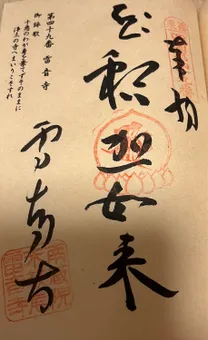 奉拝
釈迦如来
雷音寺
第四十九番 雷音寺
御詠歌
十悪のわが身を棄てずそのままに
浄土の寺へまいりこそすれ